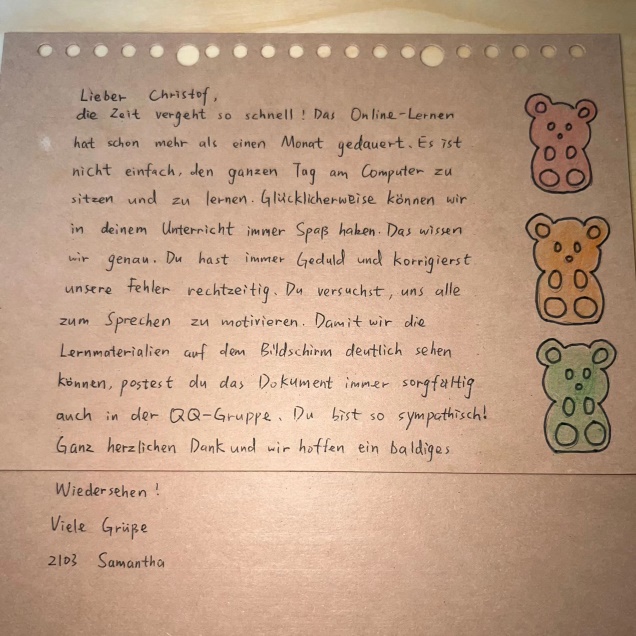 Lieber Christof,
die Zeit vergeht so schnell! Das Online-Lernen
hat schon mehr als einen Monat gedauert. Es ist
nicht einfach, den ganzen Tag am Computer zu
sitzen und zu lernen. Glücklicherweise können wir
in deinem Unterricht immer Spaß haben. Das wissen
wir genau. Du hast immer Geduld und korrigierst
unsere Fehler rechtzeitig. Du versuchst, uns alle
zum Sprechen zu motivieren. Damit wir die
Lernmaterialien auf dem Bildschirm deutlich sehen
können, postest du das Dokument immer sorgfältig
auch in der QQ-Gruppe. Du bist so sympathisch!
Ganz herzlichen Dank und wir hoffen ein baldiges
Wiedersehen!
Viele Grüße
2103 Samantha